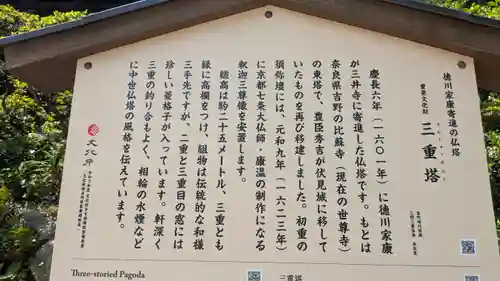 徳川家康寄進の仏塔
重要文化財
三重塔
慶長六年（一六〇一年）に徳川家康
が三井寺に寄進した仏塔です。もとは
奈良県吉野の比蘇寺（現在の世尊寺）
の東塔で、豊臣秀吉が伏見城に移して
いたものを再び移建しました。初重の
須弥壇には、元和九年（一六二三年）
に京都七条大仏師・康温の制作になる
釈迦三尊像を安置します。
総高は約二十五メートル、三重とも
縁に高欄をつけ、組物は伝統的な和様
三手先ですが、二重と三重目の窓には
珍しい菱格子が入っています。軒深く
三重の釣り合もよく、相輪の水煙など
に中世仏塔の風格を伝えています。
文化庁
Three-storied Pagoda
三重塔